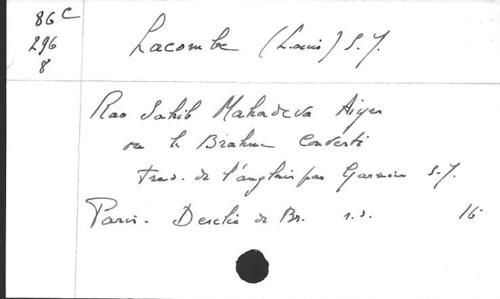 86 C
296
8
Lacombe (Louis) S.J.
Rao Sahib Mahadeva Aiyer
ou le Brahme converti
Trad. de l'anglais par S.J.
Paris. Desclée de Br. s.d. 16